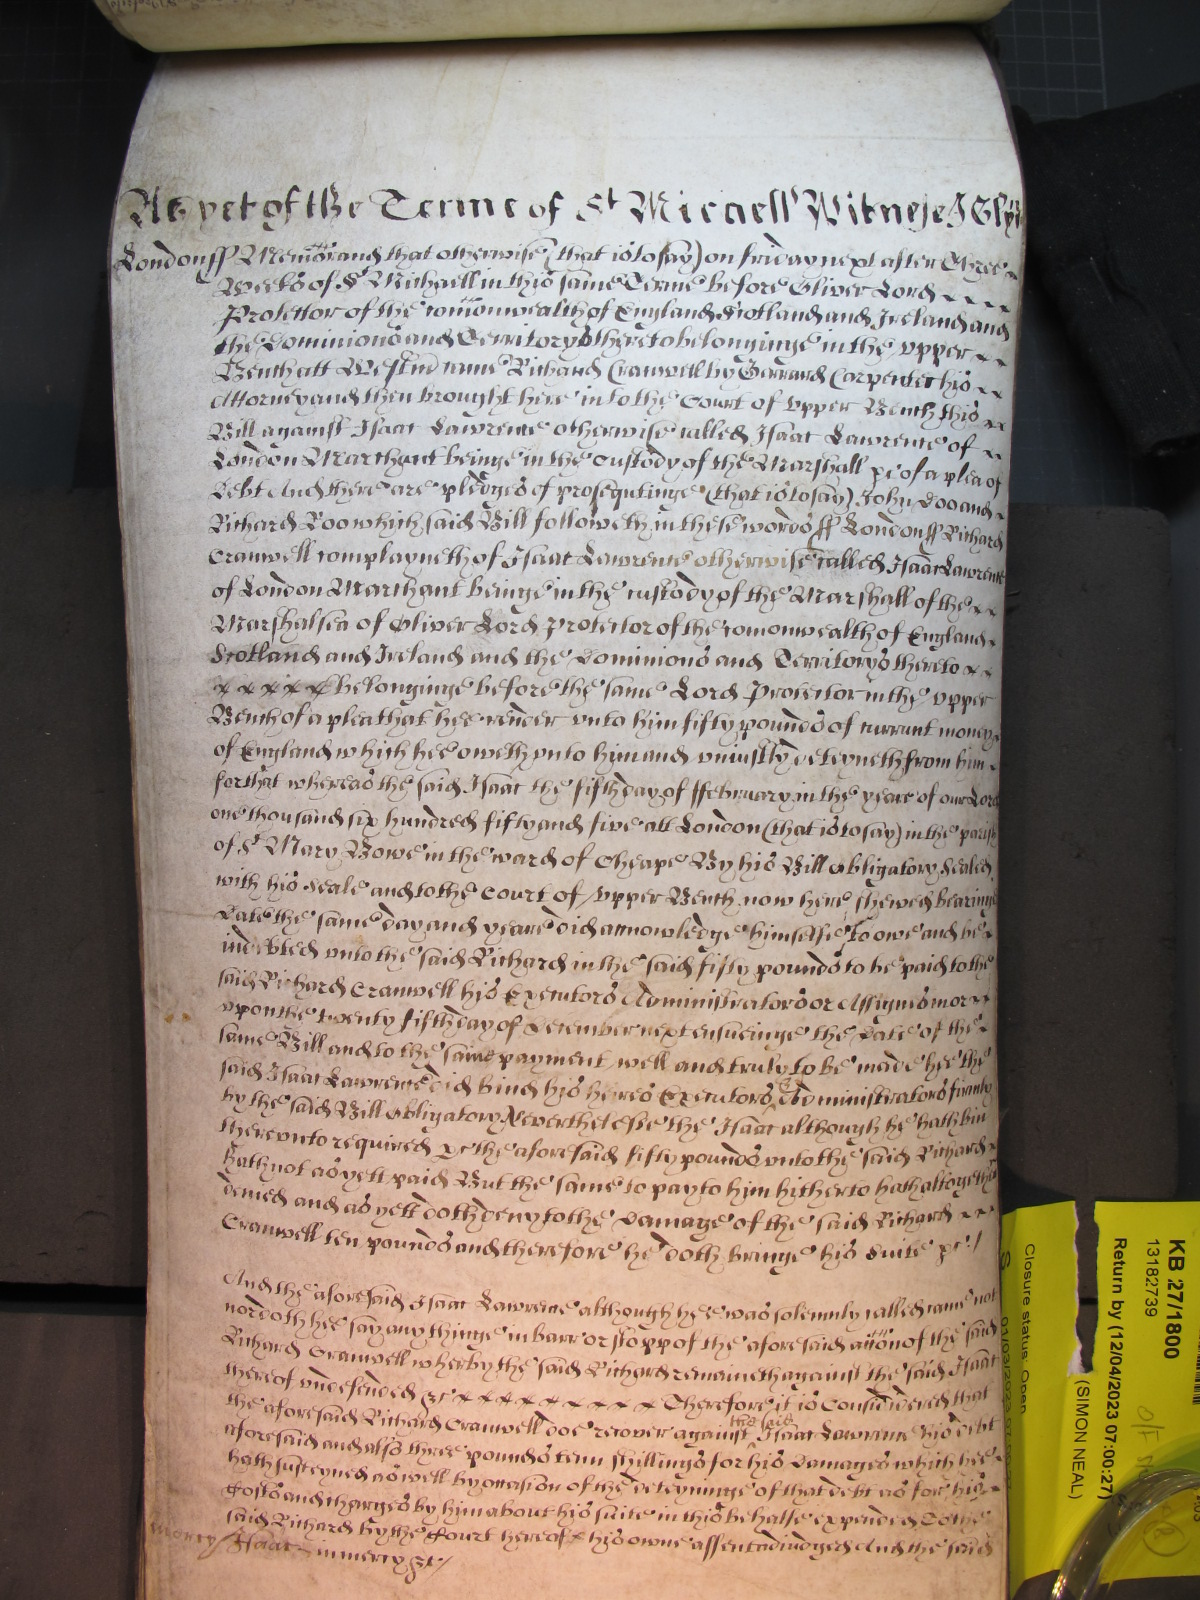 As yet of the Terme of St Michaell Witnesse J Gly
London ss Memorand that otherwise (that is to say) on friday next after Three
Weeks of St Michaell in this same Terme before Oliver Lord
Protector of the comonwealth of England Scotland and Ireland and
the Dominions and Territorys thereto belonginge in the upper
Bench att Westm came Richard Cranwell by Gerrard Carpenter his
Attorney and then brought here into the Court of upper Bench this
Bill against Isaac Lawrence otherwise called Isaac Lawrence of
London Marchant beinge in the custody of the Marshall &c of a plea of
Debt And there are pledges of prosequtinge (that is to say) John Doo and
Richard Roo which said Bill followeth in these words ss London ss Richard
Cranwell complayneth of Isaac Lawrence otherwise called Isaac Lawrence
of London Marchant beinge in the custody of the Marshall of the
Marshalsea of Oliver Lord Protector of the comonwealth of England
Scotland and Ireland and the Dominions and Territorys thereto
belonginge before the same Lord Protector in the upper
Bench of a plea that hee render unto him fifty pounds of currant money
of England which hee oweth unto him and uniustly deteyneth from him
for that whereas the said Isaac the fifth day of ffebruary in the yeare of our Lord
one thousand six hundred fifty and five att London (that is to say) in the parish
of St Mary Bowe in the ward of Cheape By his Bill obligatory Sealed
with his Seale and to the Court of upper Bench now here shewed bearinge
Date the same day and yeare did acknowledge himselfe to owe and be
indebted unto the said Richard in the said fifty pounds to be paid to the
said Richard Cranwell his Executors Administrators or Assignes in or
upon the twenty fifth day of December next ensueinge the Date of the
same Bill and to the same payment well and truly to be made hee the
said Isaac Lawrence did bind his heires Executors & Administrators firmly
by the said Bill obligatory Neverthelesse the Isaac although he hath bin
thereunto required &c the aforesaid fifty pounds unto the said Richard
hath not as yett paid But the same to pay to him hitherto hath altogether
denied and as yett doth deny to the Damage of the said Richard
Cranwell ten pounds and therefore he doth bringe his Suite &c /
And the aforesaid Isaac Lawrence although hee was solemnly called came not
nor doth hee say any thinge in barr or stopp of the aforesaid accon of the said
Richard Cranwell wherby the said Richard remaineth against the said Isaac
thereof undefended &c Therefore it is Considdered that
the aforesaid Richard Cranwell doe recover against the said Isaac Lawrence his debt
aforesaid and also three pounds tenn shillings for his Damages which hee
hath susteyned as well by occasion of the deteyninge of that debt as for his
Costs and charges by him about his suite in this behalfe expended to the
said Richard by the Court hereof his owne assent adiudged And the said
mercy / Isaac in mercy &c /
KB 27/1800
13182739
Return by (12/04/2023 07:00:27)
(SIMON NEAL)
Closure status: Open